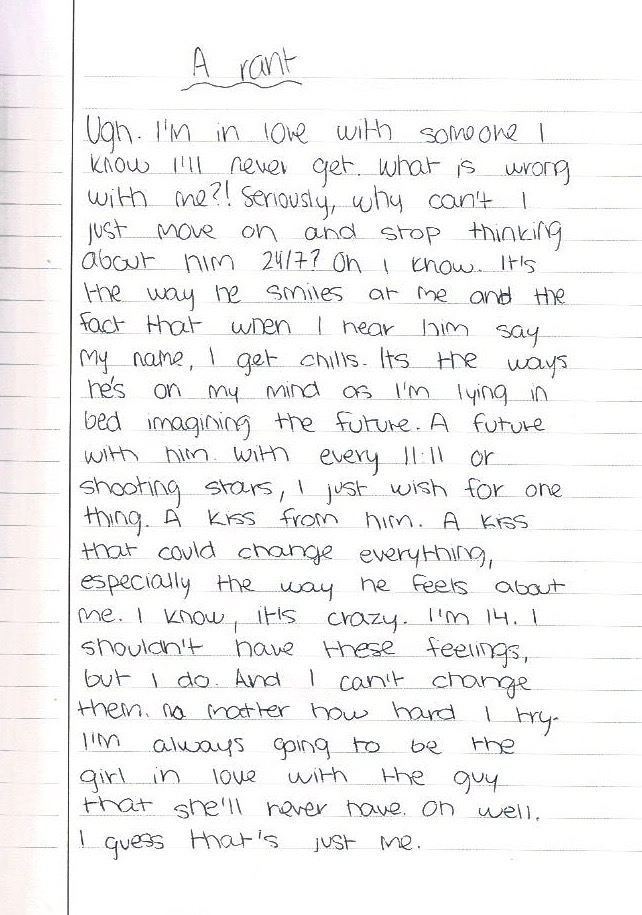 A rant
Ugh. I'm in love with someone I
know I'll never get. what is wrong
with me?! Seriously, why can't I
just move on and stop thinking
about him 24/7? Oh I know. It's
the way he smiles at me and the
fact that when I hear him say
my name, I get chills. Its the ways
he's on my mind as I'm lying in
bed imagining the future. A future
with him. with every 11:11 or
shooting stars, I just wish for one
thing. A kiss from him. A kiss
that could change everything,
especially the way he feels about
me. I know, it's crazy. I'm 14. I
shouldn't have these feelings,
but I do. And I can't change
them. no matter how hard I try.
I'm always going to be the
girl in love with the guy
that she'll never have. Oh well.
I guess that's just me.